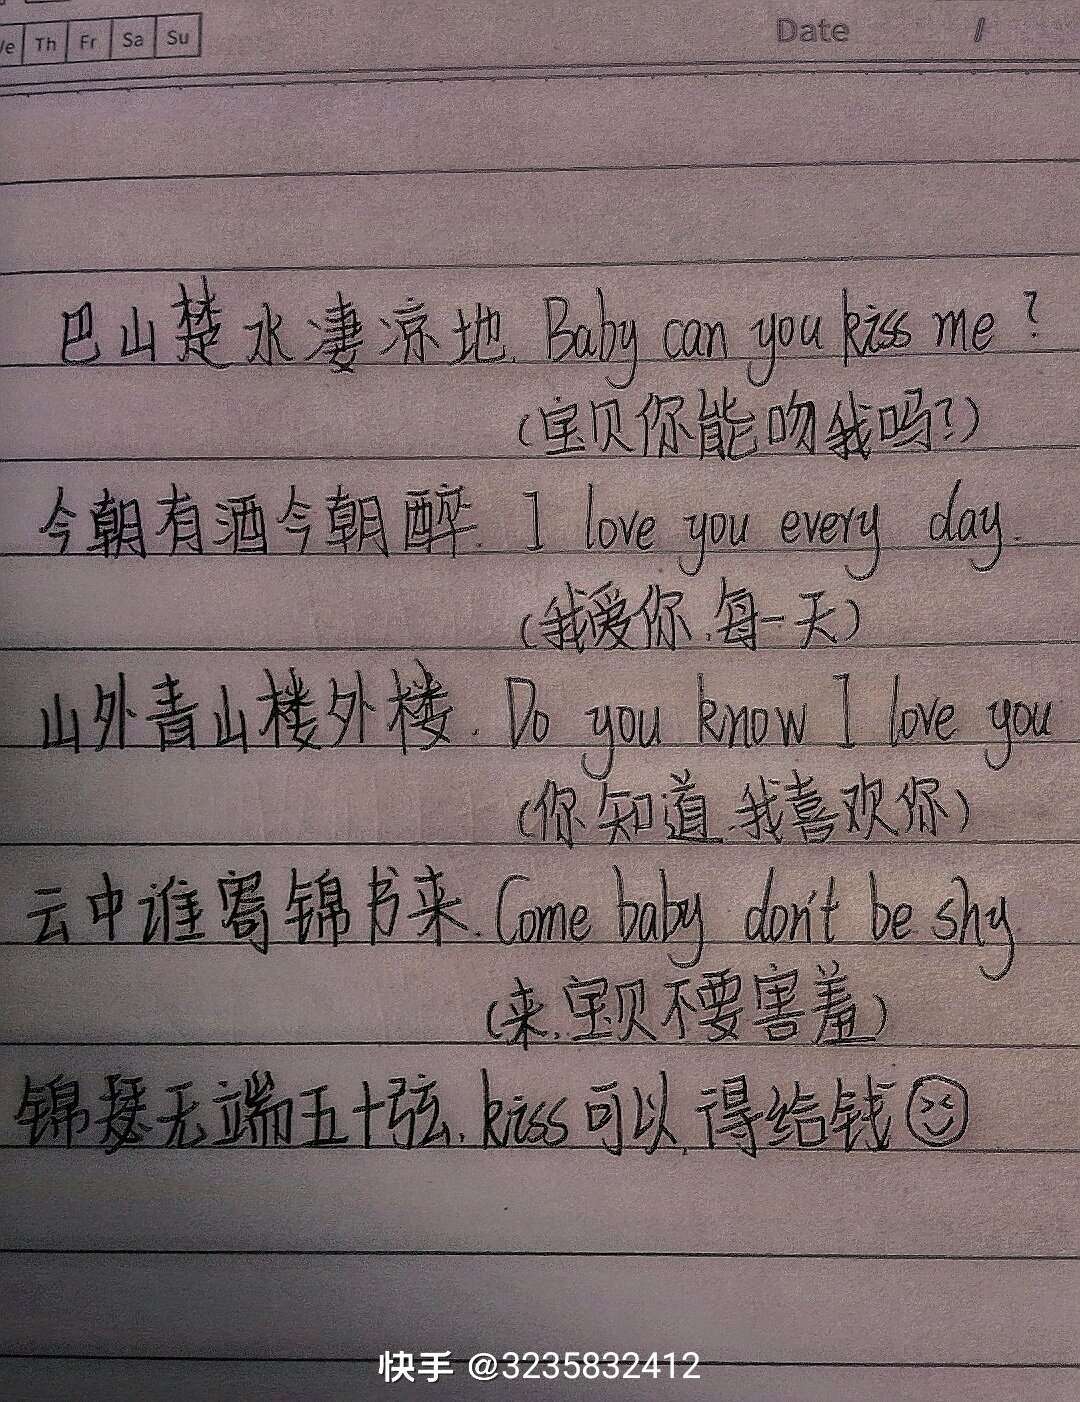 We Th Fr Sa Su
Date /
巴山楚水凄凉地. Baby can you kiss me?
(宝贝你能吻我吗?)
今朝有酒今朝醉. I love you every day.
(我爱你,每一天)
山外青山楼外楼. Do you know I love you
(你知道,我喜欢你)
云中谁寄锦书来. Come baby don't be shy
(来,宝贝不要害羞)
锦瑟无端五十弦. kiss可以,得给钱
快手 @3235832412